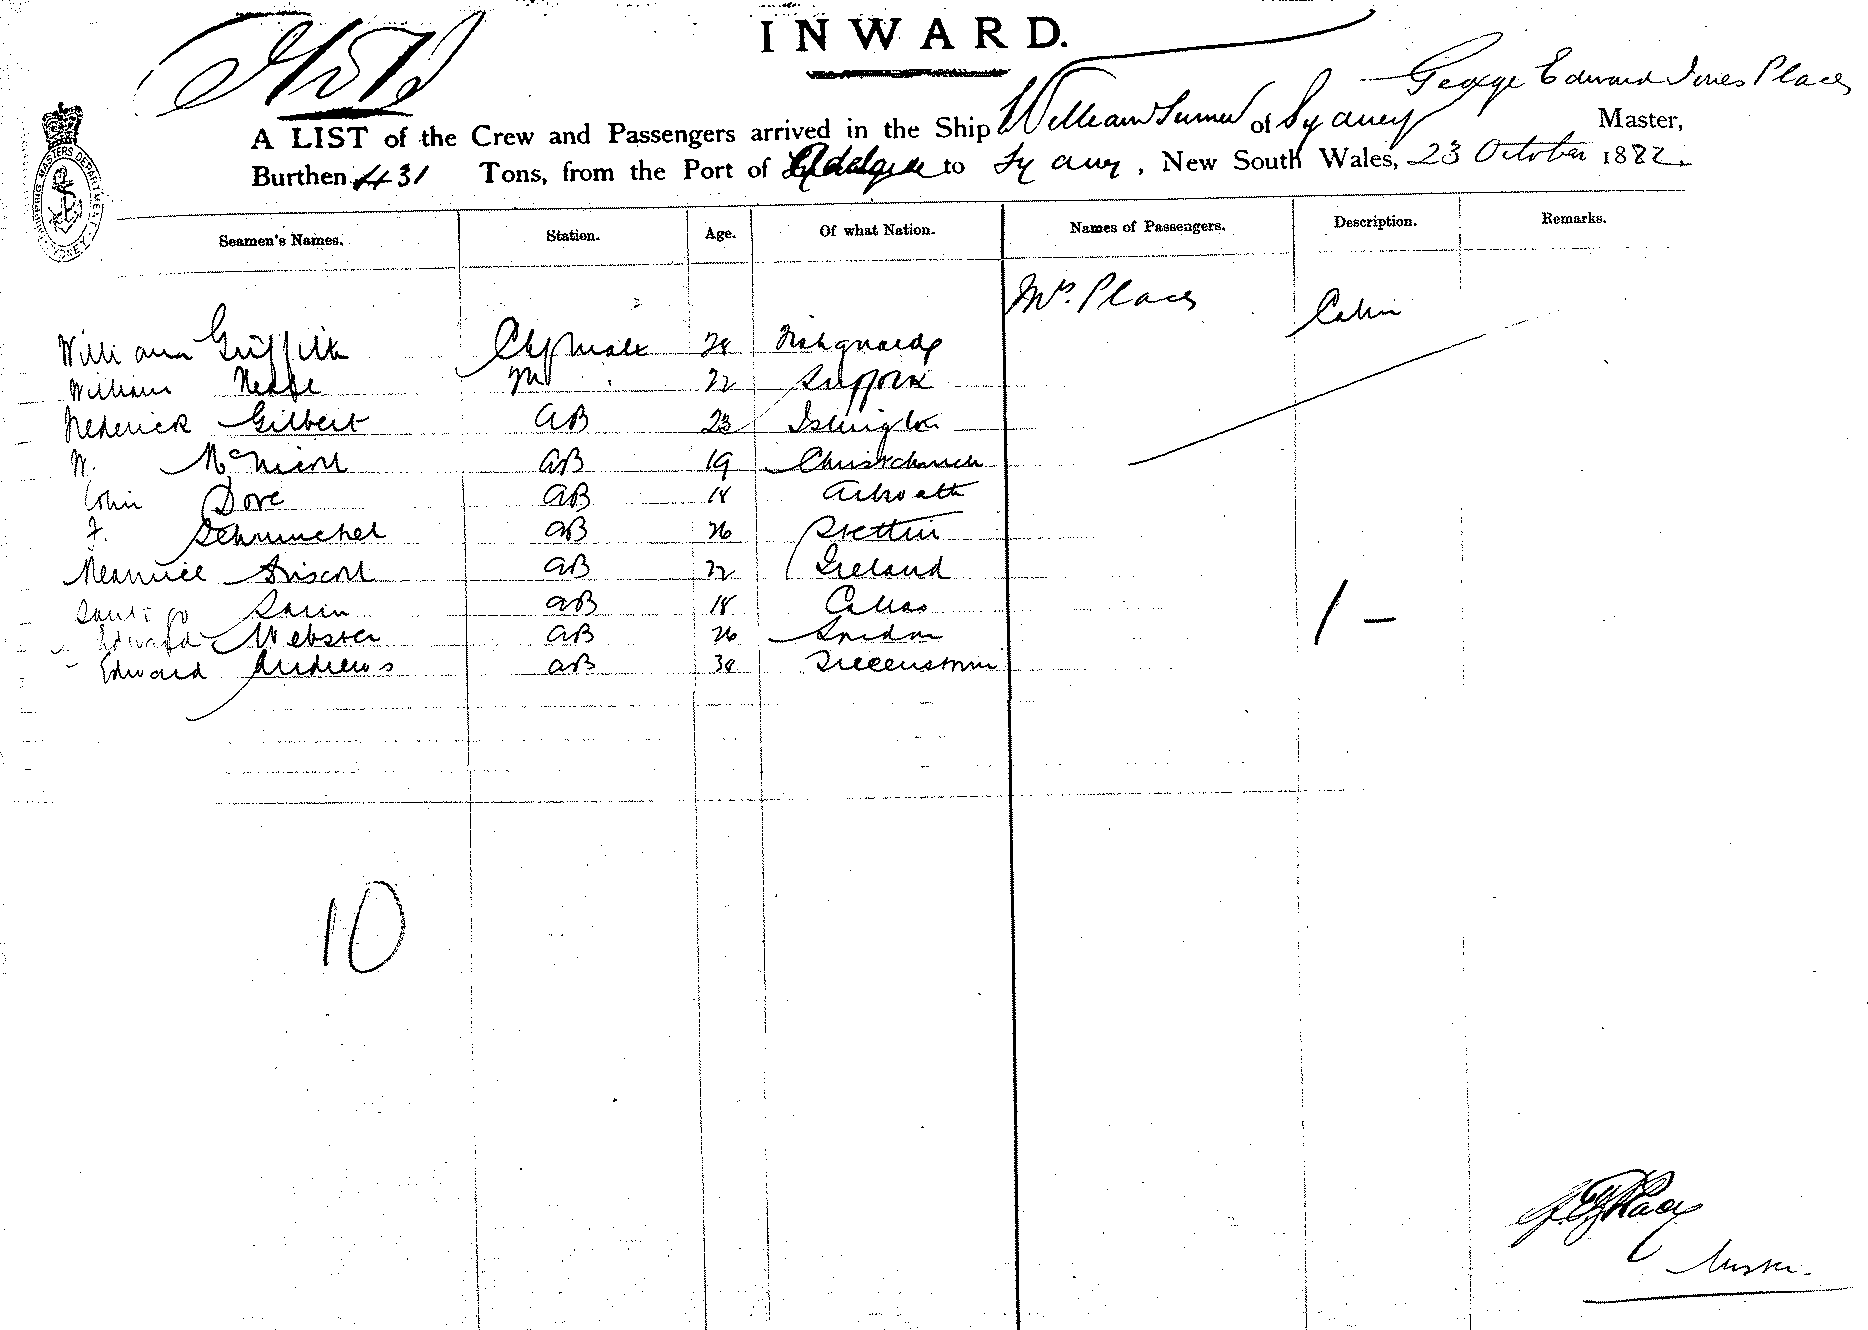 INWARD.
George Edward Jones Place
A LIST of the Crew and Passengers arrived in the Ship William Turner of Sydney Master,
Burthen 431 Tons, from the Port of to Sydney, New South Wales, 23 October 1882.
Seamen's Names. Station. Age. Of what Nation. Names of Passengers. Description. Remarks.
Mrs. Place Cabin
William Griffith Chf Mate 28 Fishguard
William M 22 Suffolk
Frederick Gilbert AB 23 Islington
W. McNicoll AB 19 Christchurch
Colin Dove AB 18 Arbroath
F. AB 26 Stettin
Maurice Driscoll AB 22 Ireland
Santiago AB 18 Callao
Edward Webster AB 26 London
Edward Andrews AB 38
1 -
10
Master.